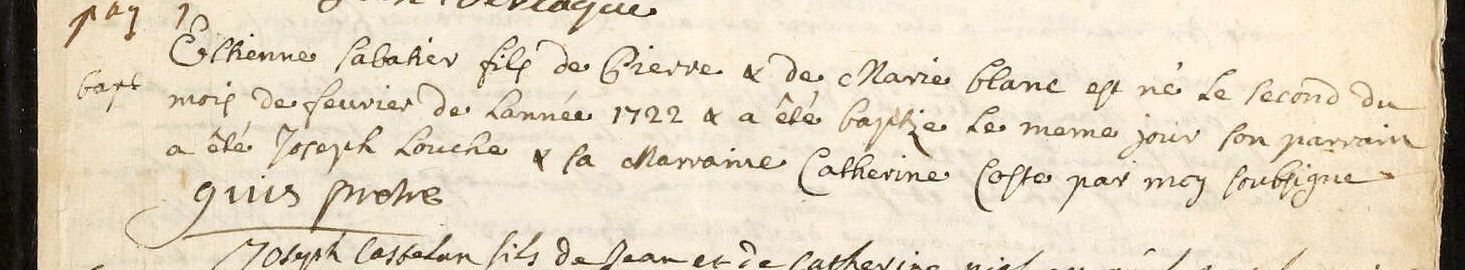 pay
Estienne Sabatier fils de Pierre & de Marie blanc est né le second du
bapt mois de fevrier de lannée 1722 & a êté baptize le meme jour son parrain
a êté Joseph Louche & sa Marraine Catherine Coste par moy soubsigne
pretre
Joseph fils de Jean et de Catherine